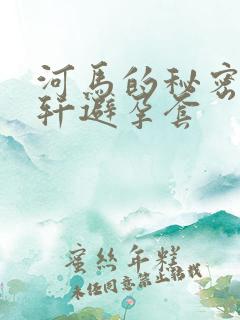 河马的秘密
轩避孕套
蜜丝年糕
未经同意禁止转载